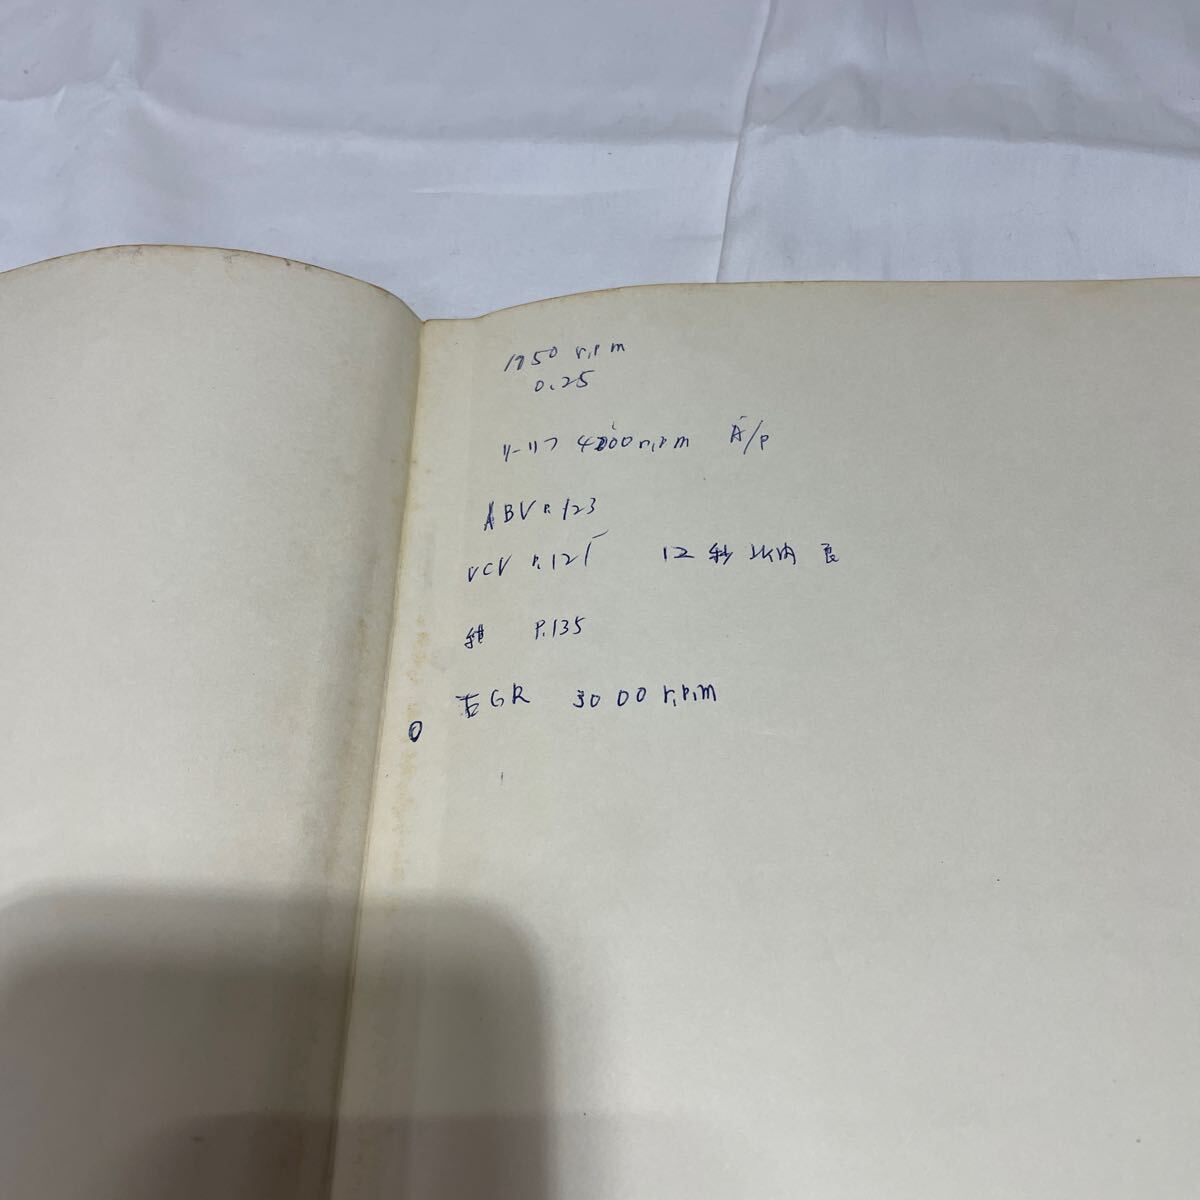 1750 r.p.m
0.25
リーリフ 4000 r.p.m A/P
ABV P.123
VCV P.125 12秒以内 良
P.135
EGR 3000 r.p.m
0